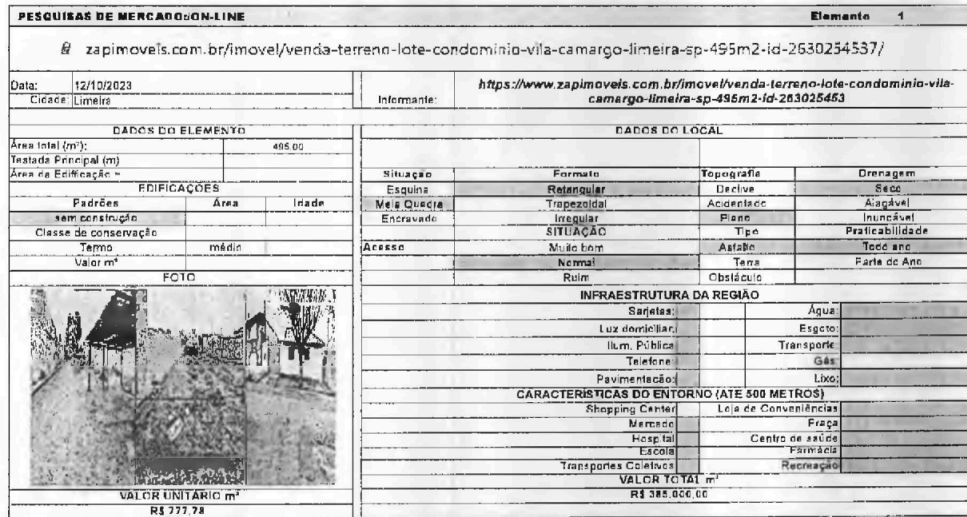 PESQUISAS DE MERCADO:ON-LINE Elemento 1
zapimoveis.com.br/imovel/venda-terreno-lote-condominio-vila-camargo-limeira-sp-495m2-id-2630254537/
Data: 12/10/2023
Cidade: Limeira
Informante: https://www.zapimoveis.com.br/imovel/venda-terreno-lote-condominio-vila-
camargo-limeira-sp-495m2-id-263025453
DADOS DO ELEMENTO
Área total (m²): 495,00
Testada Principal (m)
Área da Edificação =
EDIFICAÇÕES
Padrões Área Idade
sem construção
Classe de conservação
Termo médio
Valor m²
FOTO
VALOR UNITÁRIO m²
R$ 777,78
DADOS DO LOCAL
Situação Formato Topografia Drenagem
Esquina Retangular Declive Seco
Meia Quadra Trapezoidal Acidentado Alagável
Encravado Irregular Plano Inundável
SITUAÇÃO Tipo Praticabilidade
Acesso Muito bom Asfalto Todo ano
Normal Terra Parte do Ano
Ruim Obstáculo
INFRAESTRUTURA DA REGIÃO
Sarjetas: Água:
Luz domiciliar: Esgoto:
Ilum. Pública Transporte:
Telefone: Gás:
Pavimentação: Lixo:
CARACTERÍSTICAS DO ENTORNO (ATÉ 500 METROS)
Shopping Center Loja de Conveniências
Mercado Praça
Hospital Centro de saúde
Escola Farmácia
Transportes Coletivos Recreação
VALOR TOTAL m²
R$ 385.000,00